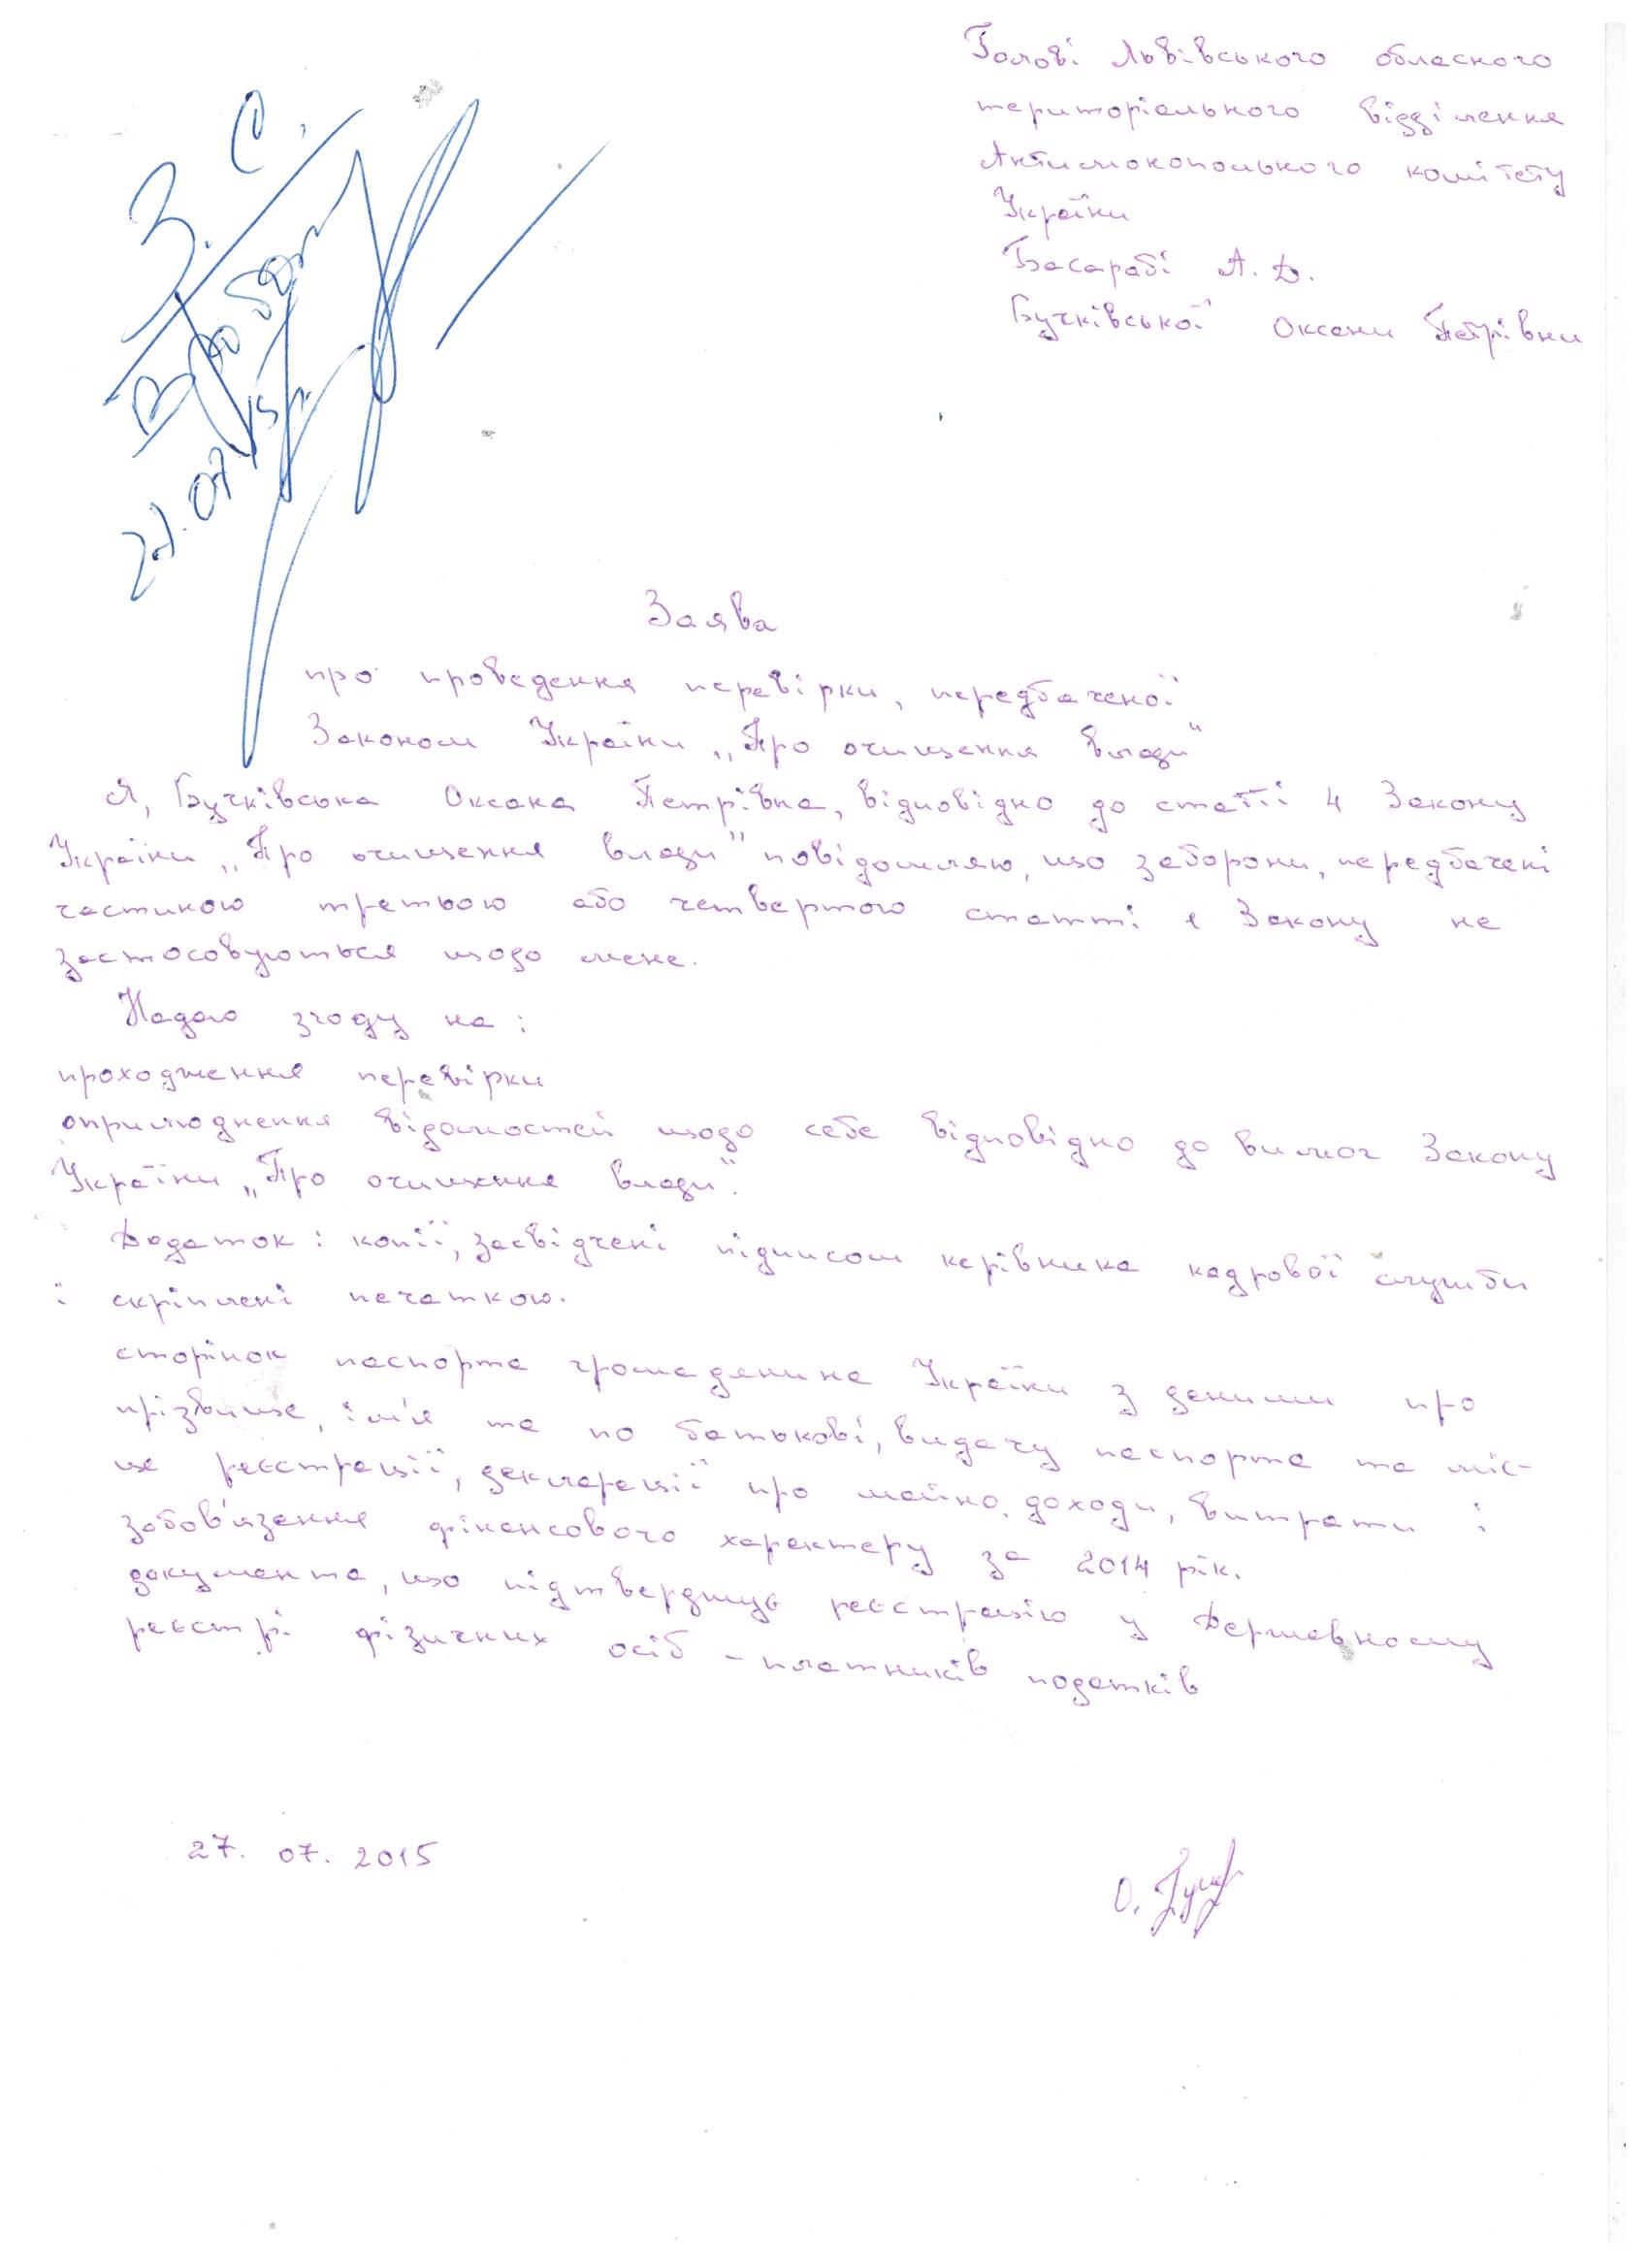 Голові Львівського обласного
територіального відділення
Антимонопольного комітету
України
Басарабі А. Д.
Бучківської Оксани Петрівни
З. С.
В роботу
27.07.15р.
Заява
про проведення перевірки, передбаченої
Законом України „Про очищення влади"
Я, Бучківська Оксана Петрівна, відповідно до статті 4 Закону
України „Про очищення влади" повідомляю, що заборони, передбачені
частиною третьою або четвертою статті 1 Закону не
застосовуються щодо мене.
Надаю згоду на:
проходження перевірки
оприлюднення відомостей щодо себе відповідно до вимог Закону
України „Про очищення влади".
Додаток: копії, засвідчені підписом керівника кадрової служби
і скріплені печаткою.
сторінок паспорта громадянина України з даними про
прізвище, ім'я та по батькові, видачу паспорта та міс-
це реєстрації, декларації про майно, доходи, витрати і
зобов'язання фінансового характеру за 2014 рік.
документа, що підтверджує реєстрацію у Державному
реєстрі фізичних осіб - платників податків
27. 07. 2015